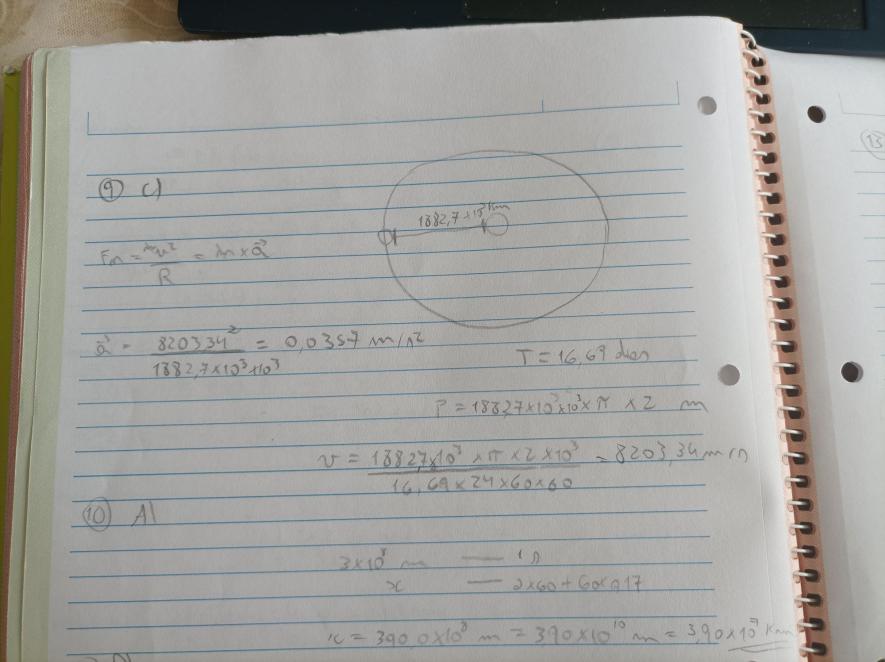 13
9 c)
1882,7 × 10³ km
Fn = mv²/R = m × a⃗
a⃗ = 8203,34²/1882,7×10³×10³ = 0,0357 m/s²
T = 16,69 dias
P = 1882,7×10³×10³×π × 2 m
v = 1882,7×10³ × π × 2 × 10³/16,69×24×60×60 = 8203,34 m/s
10 A)
3×10⁸ m — 1 s
x — 2×60+60×0,17
x = 390,0×10⁸ m = 3,90×10¹⁰ m = 3,90×10⁷ Km